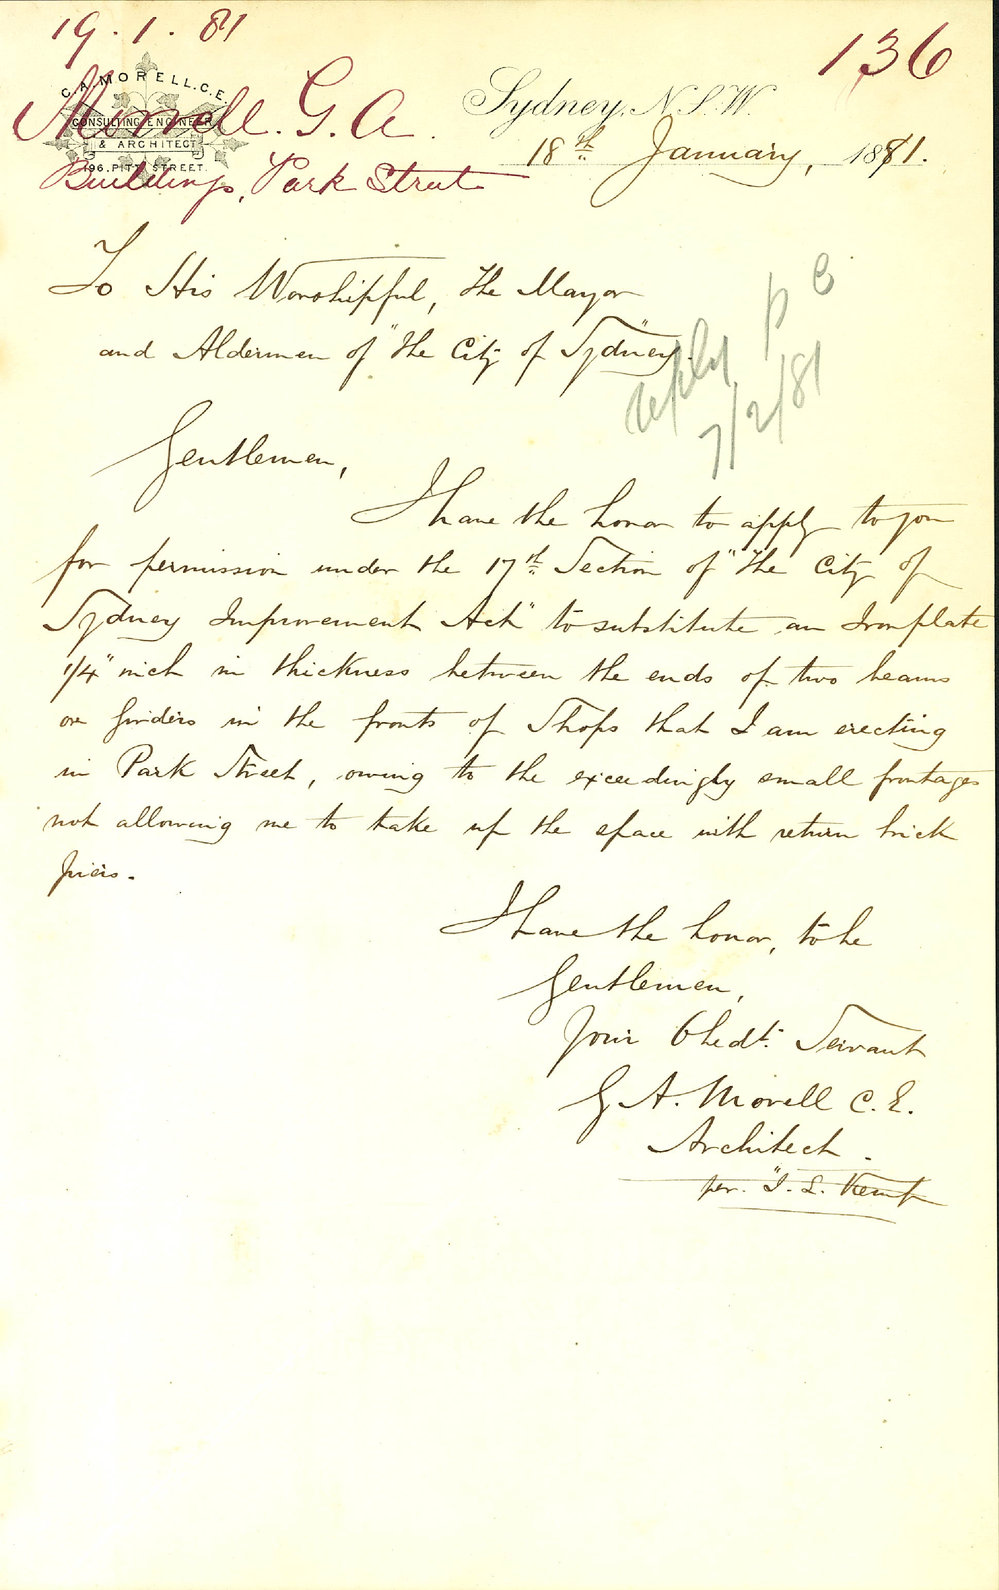 19.1.81
136
G.A. MORELL.C.E.
CONSULTING ENGINEER
& ARCHITECT
196.PITT STREET.
Morell. G. A.
Buildings, Park Street
Sydney. N.S.W.
18th January, 1881.
To His Worshipful, the Mayor
and Aldermen of "the City of Sydney".
reply p c
7/2/81
Gentlemen,
I have the honor to apply to you
for permission under the 17th Section of "the City of
Sydney Improvement Act" to substitute an Iron plate
1/4" inch in thickness between the ends of two beams
or Girders in the fronts of Shops that I am erecting
in Park Street, owing to the exceedingly small frontages
not allowing me to take up the space with return brick
piers.
I have the honor, to be
Gentlemen,
Your Obedt. Servant
G A. Morell C.E.
Architect.
per. "I. L. Kemp